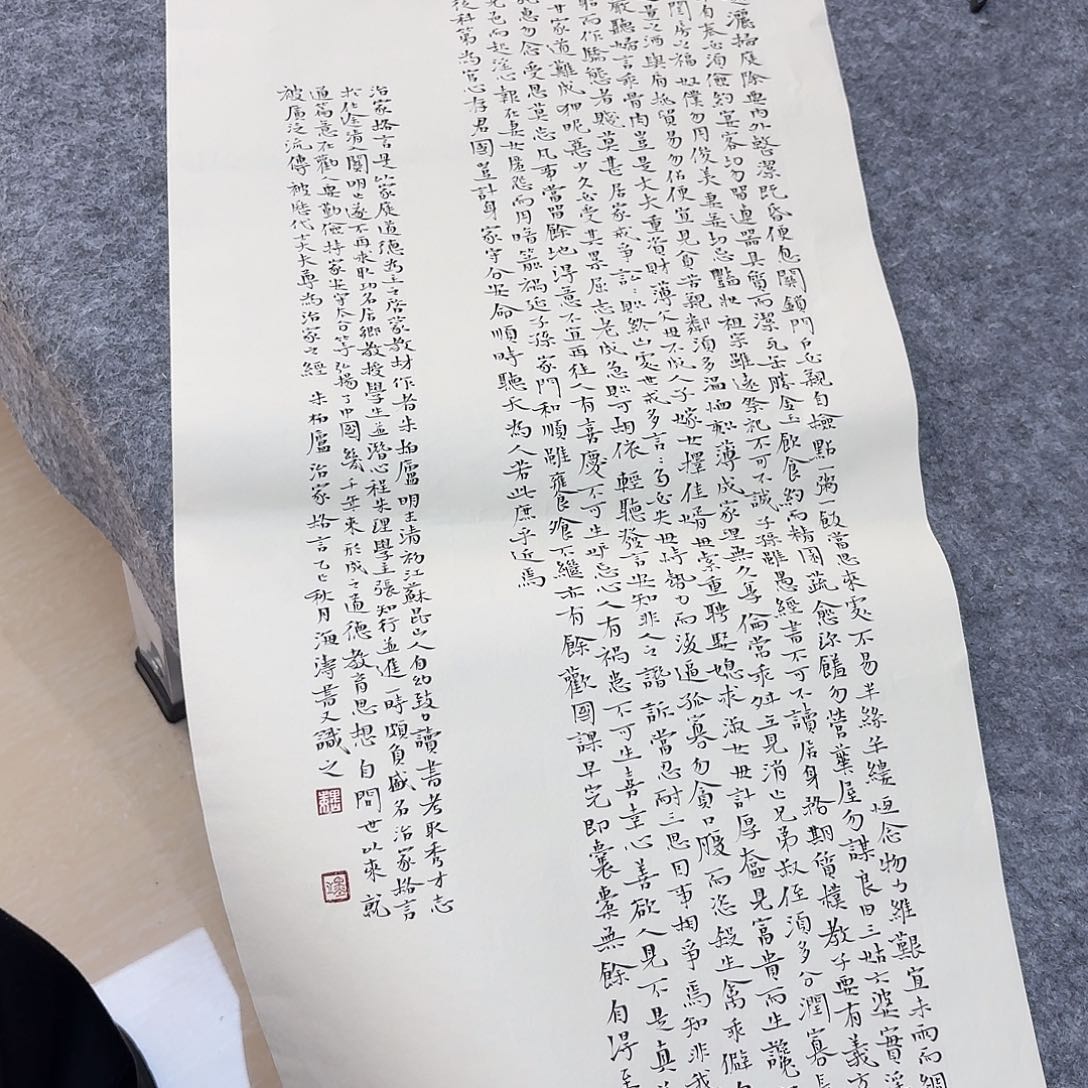 灑掃庭除要內外整潔既昏便息關鎖門戶必親自檢點一粥一飯當思來處不易半絲半縷恆念物力維艱宜未雨而綢
自奉必須儉約宴客切勿留連器具質而潔瓦缶勝金玉飲食約而精園蔬愈珍饈勿營華屋勿謀良田三姑六婆實淫
閨房之福奴僕勿用俊美妻妾切忌豔妝祖宗雖遠祭祀不可不誠子孫雖愚經書不可不讀居身務期質樸教子要有義方
量之酒與肩挑貿易勿佔便宜見貧苦親鄰須多溫恤刻薄成家理無久享倫常乖舛立見消亡兄弟叔侄須多分潤寡長
嚴聽婦言乖骨肉豈是大丈夫重資財薄父母不成人子嫁女擇佳婿毋索重聘娶媳求淑女毋計厚奩見富貴而生讒
而作驕態者賤莫甚居家戒爭訟訟則終凶處世戒多言言多必失毋恃勢力而淩逼孤寡勿貪口腹而恣殺生禽乖僻自
世家道難成狎昵惡少久必受其累屈志老成急則可相依輕聽發言安知非人之譖訴當忍耐三思因事相爭焉知非我
施惠勿念受恩莫忘凡事當留餘地得意不宜再往人有喜慶不可生妒忌心人有禍患不可生喜幸心善欲人見不是真
見色而起淫心報在妻女匿怨而用暗箭禍延子孫家門和順雖饔飧不繼亦有餘歡國課早完即囊橐無餘自得至
後科第為官心存君國豈計身家守分安命順時聽天為人若此庶乎近焉
治家格言是以家庭道德為主之啓蒙教材作者朱柏廬明末清初江蘇昆山人自幼致力讀書考取秀才志
於仕途清入關明亡遂不再求取功名居鄉教授學生並潛心程朱理學主張知行並進一時頗負盛名治家格言
通篇意在勸人要勤儉持家安守本分等弘揚了中國幾千年來形成之道德教育思想自問世以來就
被廣泛流傳被歷代士大夫尊為治家之經 朱柏廬治家格言乙巳秋月海濤書又識之